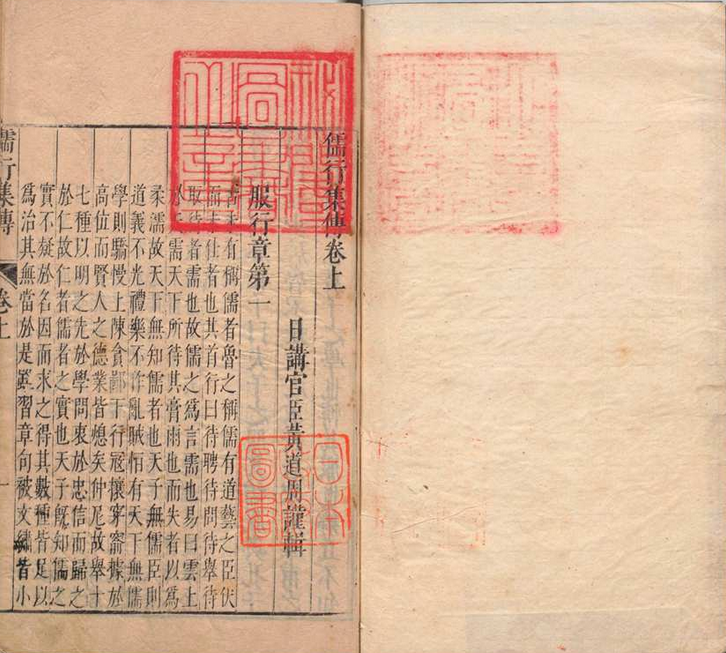 儒行集傳卷上
日講官臣黃道周謹輯
服行章第一
有稱儒者魯之稱儒有道藝之臣伏
而未仕者也其首行曰待聘待問待舉待
取待者需也故儒之為言需也易曰雲上
於天需天下所待其膏雨也而失者以為
柔濡故天下無知儒者也天子無儒臣則
道義不光禮樂不作亂賊恒有天下無儒
學則驕慢上陳貪鄙下行冠攘穿窬據於
高位而賢人之德業皆熄矣仲尼故舉十
七種以明之先於學問衷於忠信而歸之
於仁故仁者儒者之實也天子既知儒之
實不疑於名因而求之得其數種皆足以
為治其無當於是雖習章句被文繡皆小
儒行集傳
卷上
一
圖書